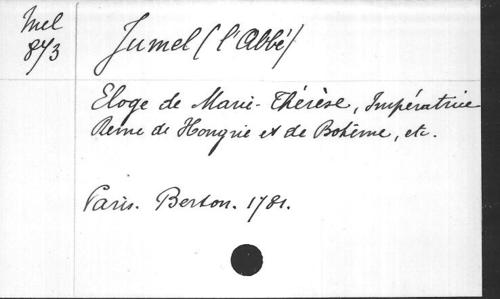 Mel
873
Jumel (l'Abbé)
Eloge de Marie-Thérèse, Impératrice
Reine de Hongrie et de Bohême, etc.
Paris. Berton. 1781.